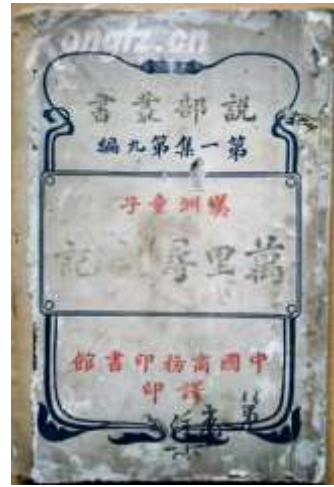 kongfz.cn
說部叢書
第一集第九編
美洲童子
萬里尋親記
中國商務印書館
譯印